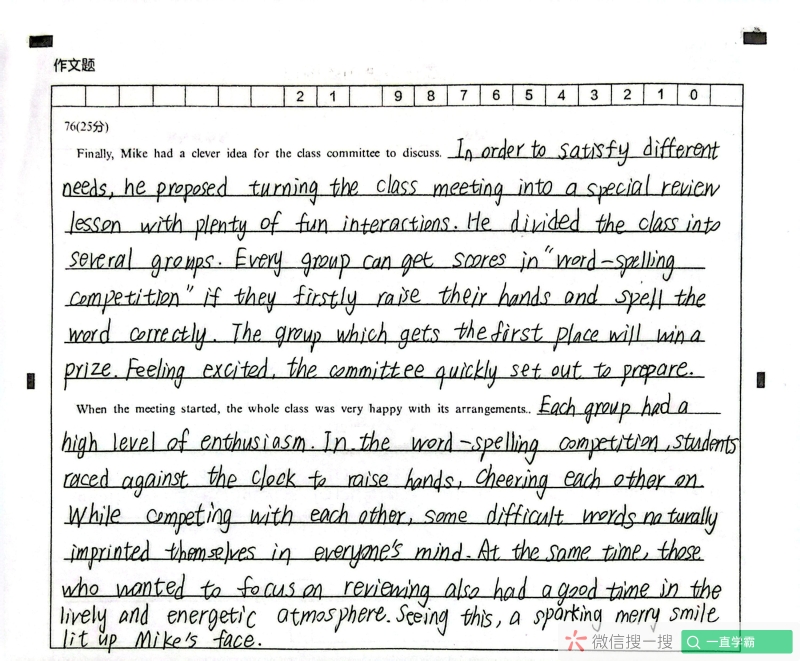 作文题
2 1 9 8 7 6 5 4 3 2 1 0
76(25分)
Finally, Mike had a clever idea for the class committee to discuss. In order to satisfy different
needs, he proposed turning the class meeting into a special review
lesson with plenty of fun interactions. He divided the class into
several groups. Every group can get scores in "word-spelling
competition" if they firstly raise their hands and spell the
word correctly. The group which gets the first place will win a
prize. Feeling excited, the committee quickly set out to prepare.
When the meeting started, the whole class was very happy with its arrangements.. Each group had a
high level of enthusiasm. In the word-spelling competition, students
raced against the clock to raise hands, cheering each other on.
While competing with each other, some difficult words naturally
imprinted themselves in everyone's mind. At the same time, those
who wanted to focus on reviewing also had a good time in the
lively and energetic atmosphere. Seeing this, a sparking merry smile
lit up Mike's face.
微信搜一搜 一直学霸